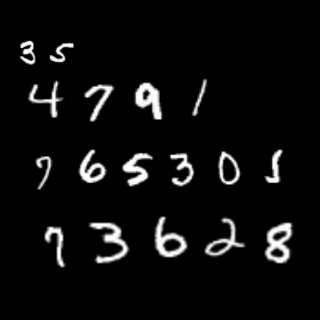 35
4791
765305
73628